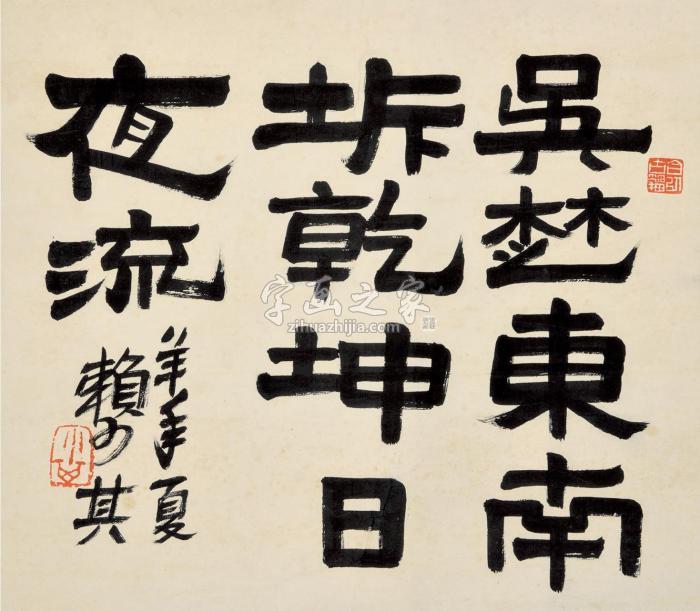 吳楚東南
坼乾坤日
夜流
羊年夏
賴少其
字画之家
zihuazhijia.com